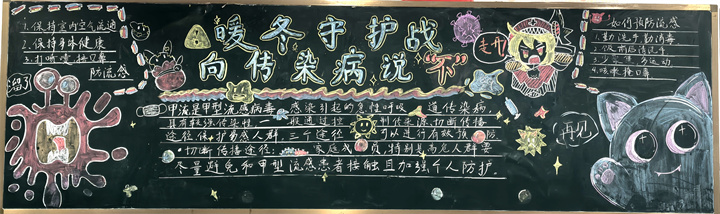 1.保持室内空气流通
2.保持身体健康
3.打喷嚏 捂口鼻
防流感
暖冬守护战
向传染病说“不”
走开
如何预防流感
1.勤洗手 勤消毒
2.饭前后洗手
运动
4.咳嗽捂口鼻
甲流是甲型流感病毒 感染引起的急性呼吸 道传染病
具有较强传染性 般通过控 制传染源切断传播
途径保护易感人群 三个途径 可以进行有效预防
·切断传播途径： 家庭成员,特别是高危人群要
尽量避免和甲型流感患者接触且加强个人防护.
再见